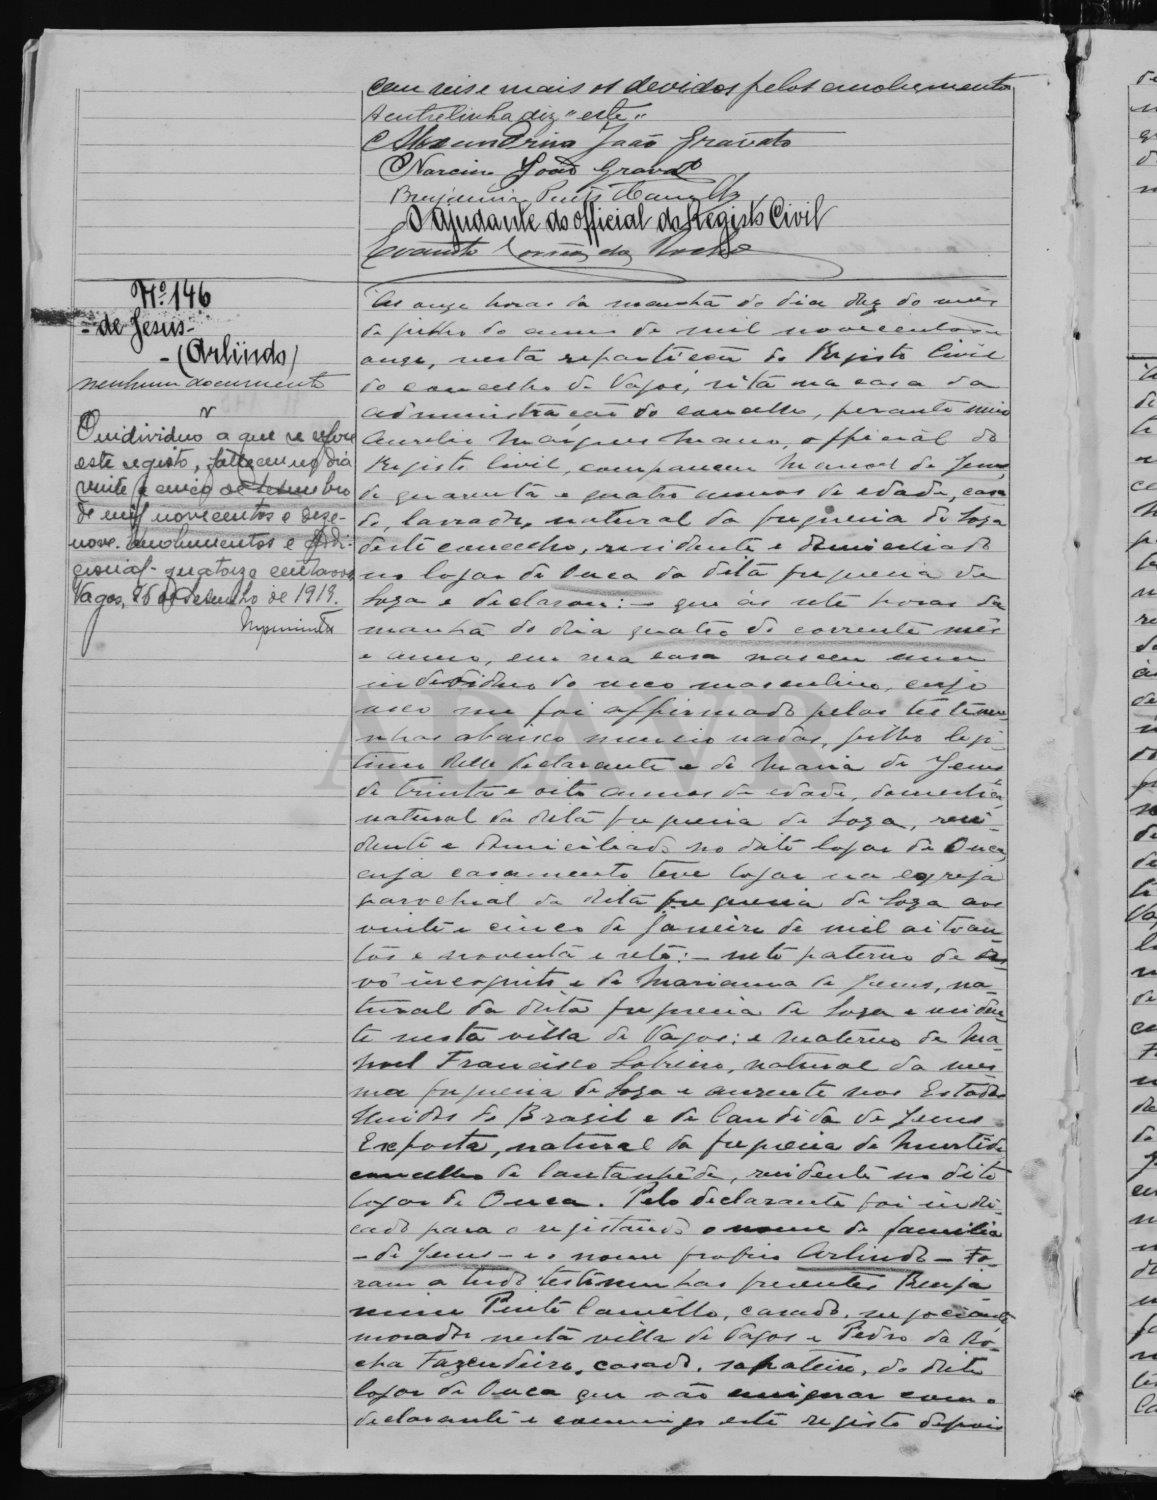 cem reis e mais os devidos pelos emolumentos
A entrelinha diz "este"
Alexandrina João Gravato
Narciso João Gravato
Benjamim Pinto Camello
O ajudante do official do Registo Civil
Evaristo Corrêa da Rocha
Nº 146
- de Jesus -
- (Arlindo)
nenhum documento
O individuo a que se refere
este registo, falleceu no dia
vinte e cinco de Desembro
de mil novecentos e deze-
nove. Emolumentos e addi-
cional - quatorze centavos
Vagos, 26 de Desembro de 1919.
As onze horas da manhã do dia dez do mez
de julho do anno de mil novecentos e
onze, nesta repartição do Registo Civil
do concelho de Vagos, sita na casa da
administração do concelho, perante mim
Aurelio Marques Mano, official do
Registo Civil, compareceu Manoel de Jesus,
de quarenta e quatro annos de edade, casa
do, lavrador, natural da freguesia de Soza
deste concelho, residente e domiciliado
no logar de Ouca da dita freguesia de
Soza e declarou: - que ás sete horas da
manhã do dia quatro do corrente mês
e anno, em sua casa nasceu um
individuo do sexo masculino, cujo
sexo me foi affirmado pelas testemu
nhas abaixo mencionadas, filho legi-
timo delle declarante e de Maria de Jesus
de trinta e oito annos de edade, domestica
natural da dita freguesia de Soza, resi-
dente e domiciliada no dito logar de Ouca,
cujo casamento teve logar na egreja
parochial da dita freguesia de Soza aos
vinte e cinco de Janeiro de mil oitocen
tos e noventa e sete: - neto paterno de a-
vô incognito e de Marianna de Jesus, na-
tural da dita freguesia de Soza e residen-
te nesta villa de Vagos; e materno de Ma-
noel Francisco Sobreiro, natural da mes
ma freguesia de Soza e ausente nos Estados
Unidos do Brazil e de Candida de Jesus
Exposta, natural da freguesia de Murtêde
concelho de Cantanhêde, residente no dito
logar de Ouca. Pelo declarante foi indi-
cado para o registando o nome de familia
- de Jesus - e o nome proprio Arlindo - Fo-
ram a tudo testemunhas presentes Benja
mim Pinto Camello, casado, negociante
morador nesta villa de Vagos e Pedro da Ro-
cha Fazendeiro, casado, sapateiro, do dito
logar de Ouca que vão assignar com o
declarante e commigo este registo depois
ADAVR